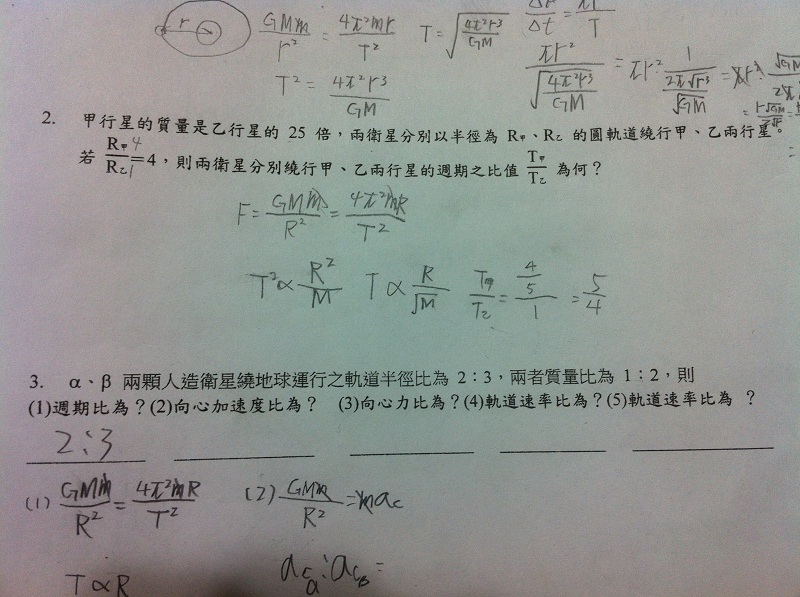 r
GMm/r² = 4π²mr/T²  T = √(4π²r³/GM)
T² = 4π²r³/GM
πr²/√(4π²r³/GM) = πr² · 1/(2π√r³/√GM)
2. 甲行星的質量是乙行星的 25 倍，兩衛星分別以半徑為 R甲、R乙 的圓軌道繞行甲、乙兩行星。
若 R甲/R乙=4，則兩衛星分別繞行甲、乙兩行星的週期之比值 T甲/T乙 為何？
F = GMm/R² = 4π²mR/T²
T² ∝ R²/M  T ∝ R/√M  T甲/T乙 = (4/5)/1 = 5/4
3. α、β 兩顆人造衛星繞地球運行之軌道半徑比為 2：3，兩者質量比為 1：2，則
(1)週期比為？(2)向心加速度比為？ (3)向心力比為？(4)軌道速率比為？(5)軌道速率比為 ？
2:3
(1) GMm/R² = 4π²mR/T²  (2) GMm/R² = mac
T ∝ R